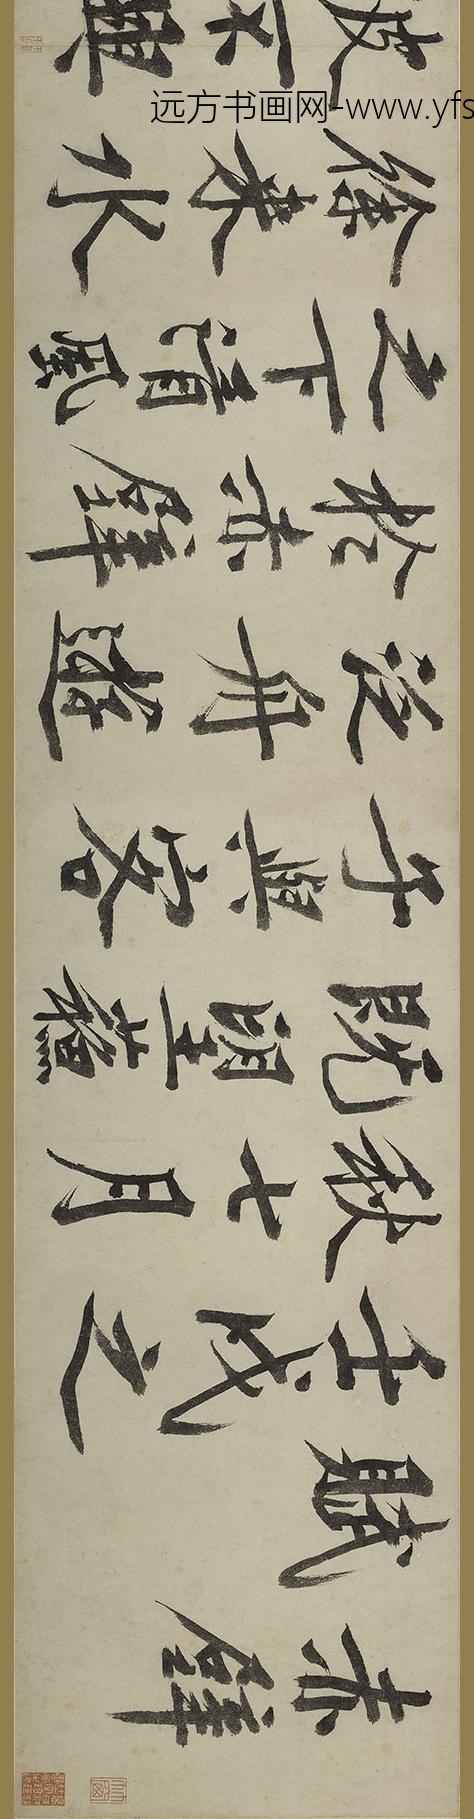 赤壁
賦
壬戌之
秋七月
既望蘇
子與客
泛舟遊
於赤壁
之下清風
徐來水
波不興
远方书画网-www.yfs